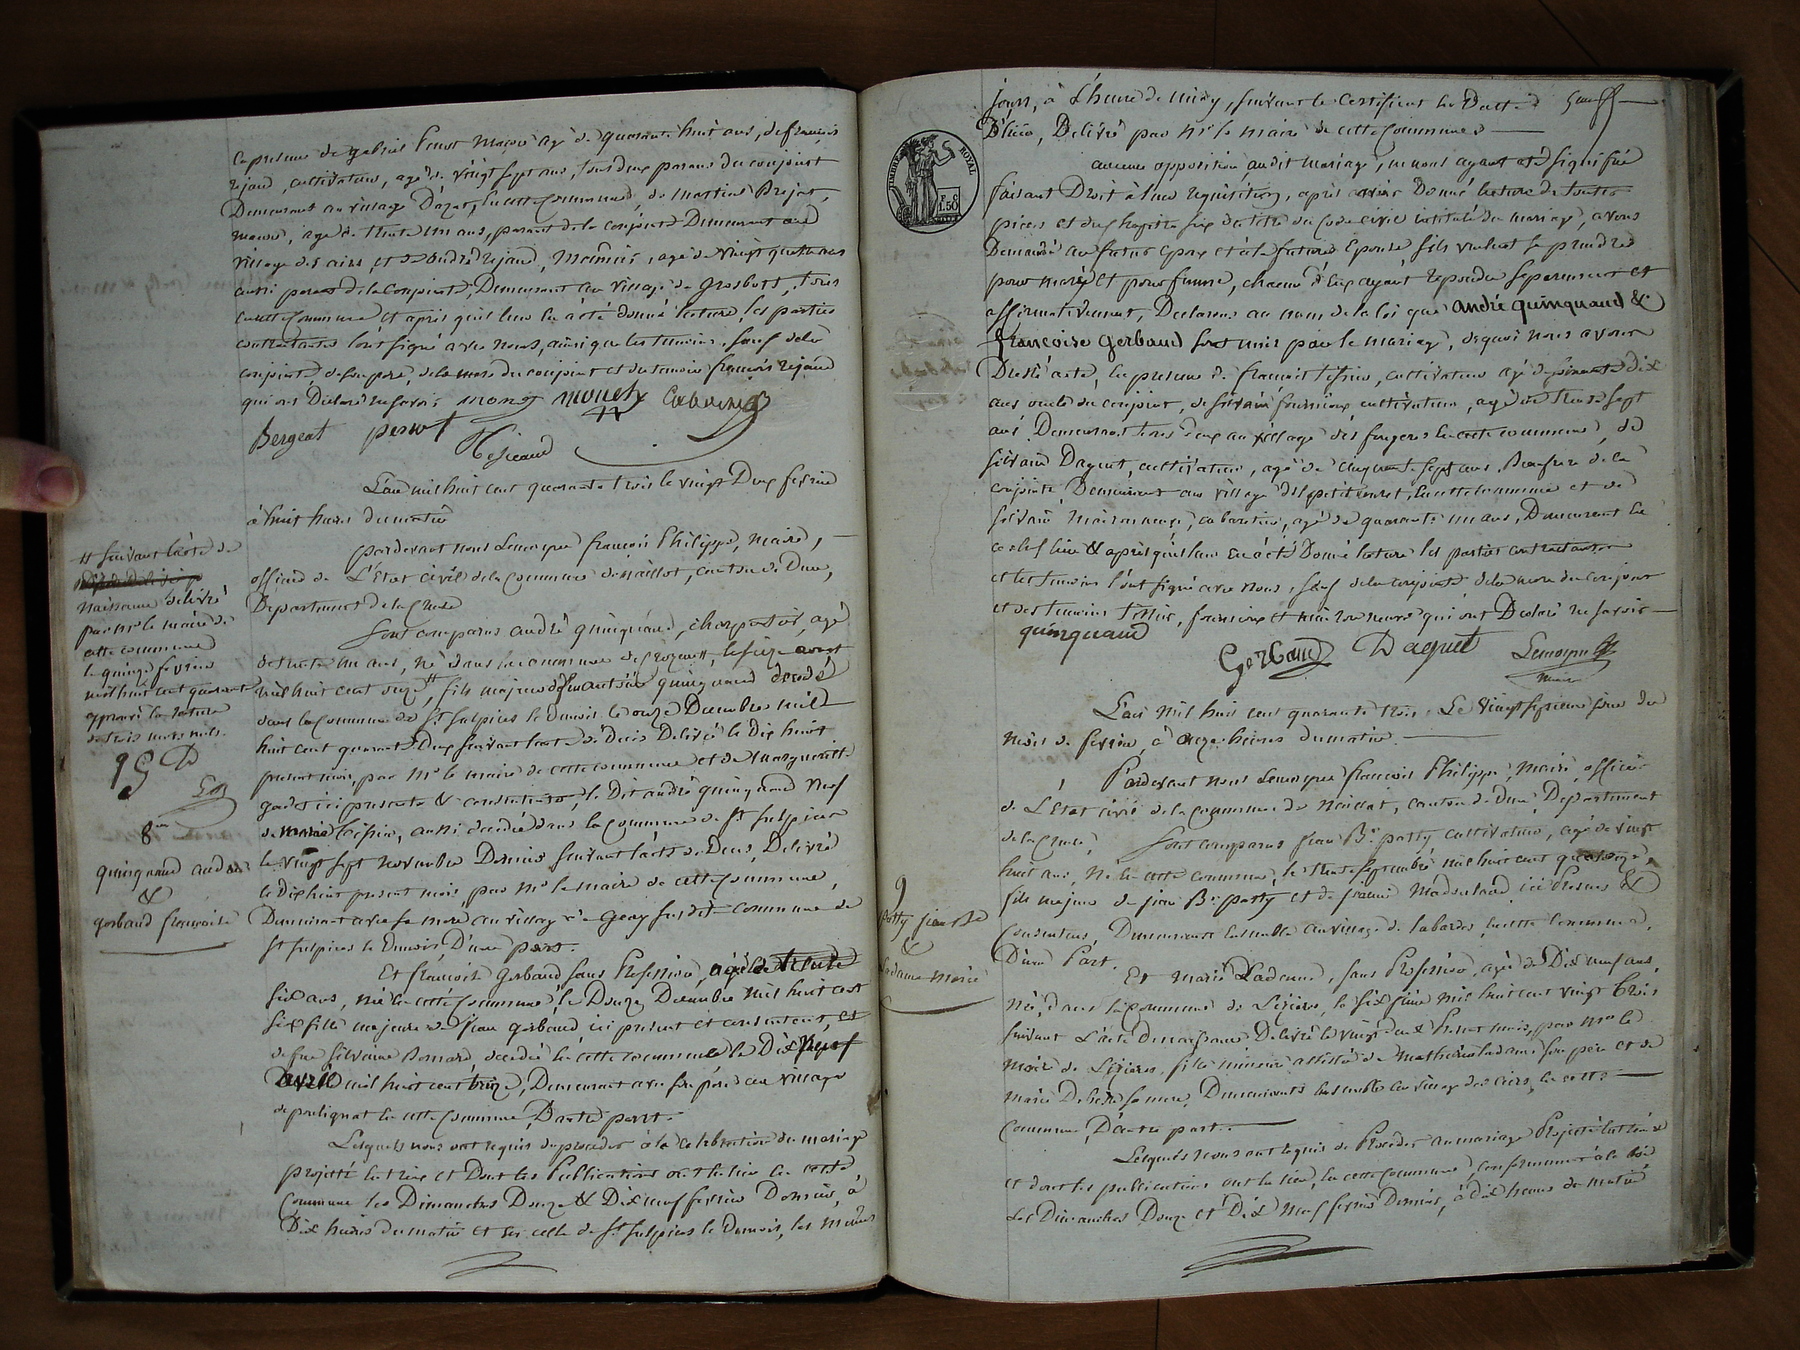 En presence de gabriel Penot Maçon agé de quarante huit ans, de françois
rejaud, cultivateur, agé de vingt sept ans, tous deux parans du conjoint
Demeurant au village D'azat, en cette Commune, de Martin Brejat,
maçon, agé de trente un ans, parant de la conjointe Demeurant au
village des airs, et de andré rejaud, , agé de vingt quatre ans
aussi parant de la Conjointe, Demeurant au village de Grosbost, tous
en cette Commune et après qu'il leur en a été donné lecture, les parties
contractantes l'ont signé avec nous, ainsi que les temoins, sauf de la
conjointe de son pere, de la mere du conjoint et du temoin françois rejaud
qui ont Déclaré ne savoir
Bergeat penot
Rejeaud
L'an mil huit cent quarante trois le vingt Deux fevrier
à huit heures du matin
pardevant nous Lemoyne françois Philippe, maire,
officier de L'Etat Civil de la Commune de naillat, canton de Dun,
Département de la Creuse
Sont comparus andré quinquaud, charpentier, agé
de trente un ans, né dans la commune de , le seize avril
mil huit cent onze #, fils majeur de quinquaud décédé
dans la Commune de St Sulpice le Dunois le onze Decembre mil
huit cent quarante Deux suivant l'acte de Décès Delivré le Dix huit
present mois, par Mr le maire de cette commune et de Marguerite
 ici presente & consentente, le Dit andré quinquaud veuf
de marie tixier, aussi decedée dans la Commune de St Sulpice
le vingt sept novembre Dernier suivant l'acte de Deces, Delivré
le Dix huit present mois, par Mr le maire de cette Commune,
Demeurant avec sa mere au village de susdite commune de
St Sulpice le Dunois, D'une part.
Et francoise gerbaud sans Profession, agée de trente
six ans, née en cette Commune le Douze Decembre mil huit cent
six fille majeure de Jean gerbaud ici present et consentent, et
de feue Silvaine Bonnard, decedée en cette commune le Dix neuf
avril mil huit cent treize, Demeurant avec son père au village
de poulignat en cette Commune, D'autre part.
Lesquels nous ont requis de proceder à la celebration du mariage
projeté entr'eux et Dont les Publications ont eu lieu en cette
Commune les Dimanches Douze & Dix neuf fevrier Dernier, à
Dix heures du matin et en celle de St Sulpice le Dunois, les mêmes
# Suivant l'acte de
naissance delivré
par Mr le maire de
cette commune
le quinze fevrier
mil huit cent quarante
approuvé la rature
de trois mots nuls.
8me
quinquaud andré
&
gerbaud francoise
TIMBRE ROYAL
F. C
1.50
jours, à L'heure de midy, suivant le Certificat en Datte
D'hier, Delivré par Mr le maire de cette Commune
aucune opposition audit mariage, ne nous ayant été signifiée
faisant Droit à leur requisition, après avoir Donné lecture de toutes
pieces et du chapitre six du titre du Code civil intitulé du mariage, avons
Demandé au futur Epoux et à la future Epouse, s'ils veulent se prendre
pour mari et pour femme, chacun d'eux ayant repondu séparement et
affirmativement, Declarons au nom de la loi que andré quinquaud &
françoise gerbaud sont unis par le mariage, de quoi nous avons
Dressé acte, en presence de francois tixier, cultivateur agé de soixante dix
ans oncle du conjoint, de silvain fournioux cultivateur, agé de trente sept
ans Demeurant tous deux au village des fougeres en cette commune, de
silvain Daguet, cultivateur, agé de cinquante sept ans Beaufrere de la
conjointe Demeurant au village , en cette commune et de
silvain maisonneuve, cabaretier, agé de quarante un ans, Demeurant en
ce chef lieu & après qu'il leur en a été Donné lecture les parties contractantes
et les temoins l'ont signé avec nous, sauf de la conjointe de la mere du conjoint
et des temoins tixier, fournioux et maisonneuve qui ont Declaré ne savoir
quinquaud
Gerbaud Daguet Lemoyne
maire
L'an mil huit cent quarante trois Le vingt septieme jour du
mois de fevrier, à onze heures du matin.
Pardevant nous Lemoyne francois Philippe, Maire, officier
de L'Etat civil de la Commune de Naillat, canton de Dun, Departement
de la Creuse, Sont comparus Jean Bte patty cultivateur, agé de vingt
huit ans, Né en cette commune, le trente septembre mil huit cent quatorze,
fils majeur de jean Bte patty et de ici Presens &
Consentens, Demeurant Ensemble au village de labarde, en cette Commune,
D'une Part.
Et marie Ladame, sans Profession, agée de Dix neuf ans,
née, dans la commune de Lizieres, le six juin mil huit cent vingt trois
suivant L'acte de naissance Delivré le vingt deux Present mois, par Mr le
maire de Lizieres, fille mineure assistée de mathieu ladame son père et de
marie sa mere, Demeurants Ensemble au village des airs, en cette
Commune, D'autre part.
Lesquels nous ont requis de Proceder au mariage Projetté entr'eux
et dont les publications ont eu lieu, en cette Commune, conformement à la loi
Les Dimanches Douze et Dix Neuf fevrier Dernier, à Dix heures du matin
9
Patty jean Bte
&
Ladame marie